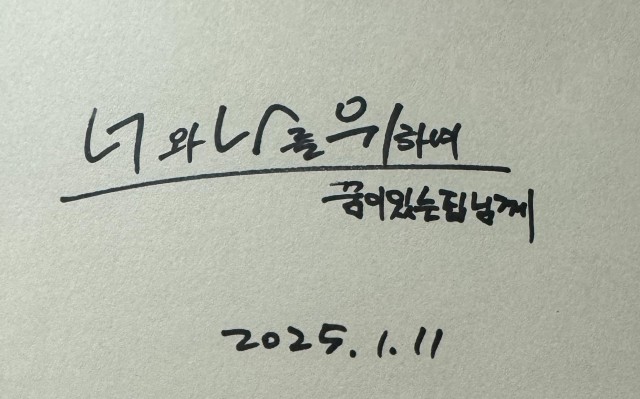 너와 나를 위하여
꿈이있는팁님께
2025.1.11